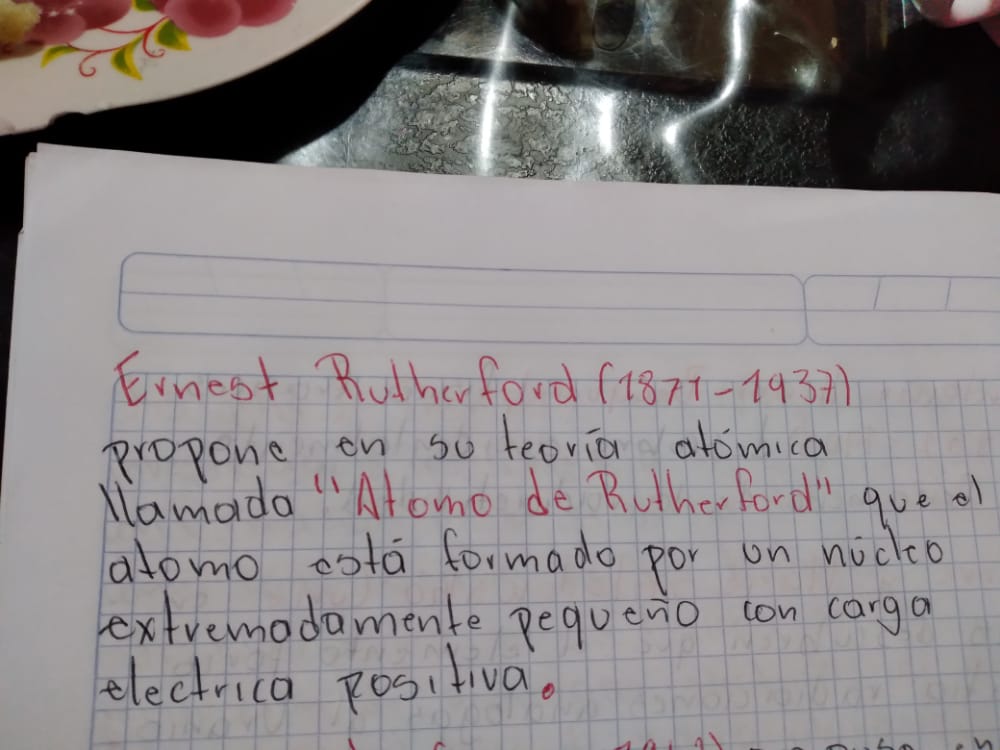 Ernest Rutherford (1871-1937)
propone en su teoría atómica
llamada "Atomo de Rutherford" que el
atomo está formado por un núcleo
extremadamente pequeño con carga
electrica positiva.